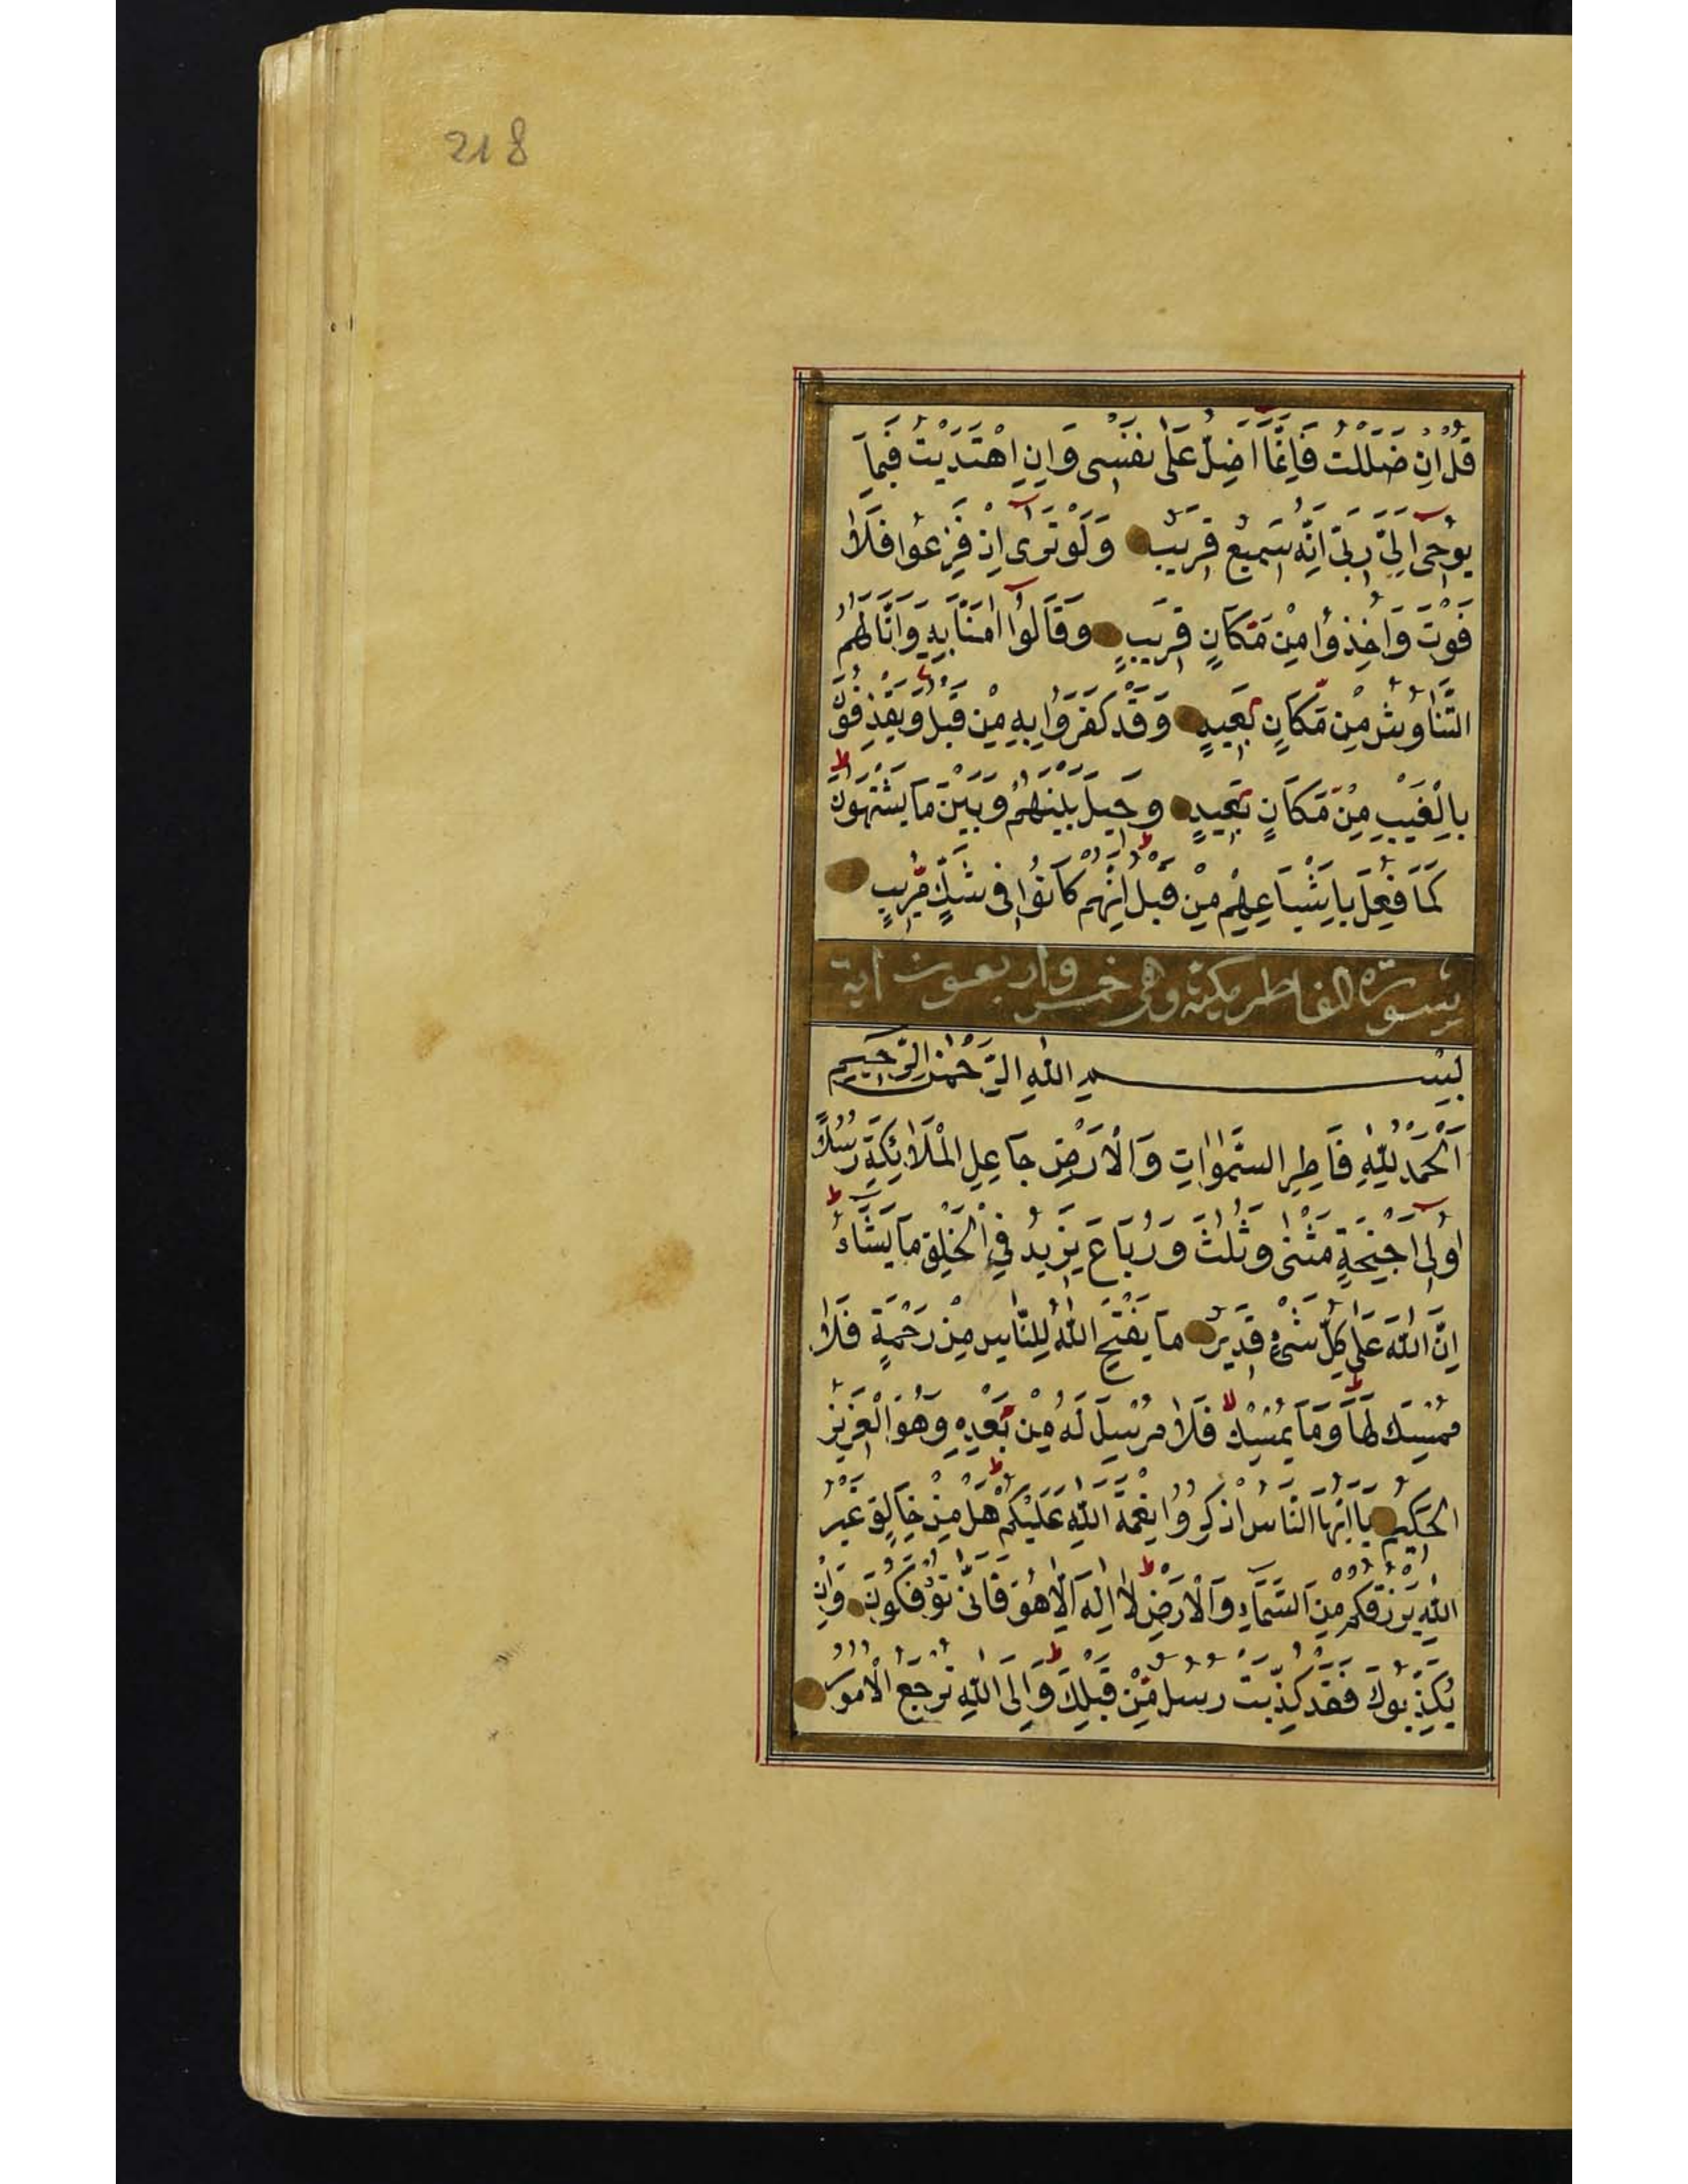 218
قُلْ اِنْ ضَلَلْتُ فَاِنَّمَٓا اَضِلُّ عَلٰى نَفْسِى وَاِنِ اهْتَدَيْتُ فَبِمَا
يُوحٰٓى اِلَىَّ رَبِّىٓ اِنَّهُ سَمِيعٌ قَرِيبٌ وَلَوْ تَرٰٓى اِذْ فَزِعُوا فَلَا
فَوْتَ وَاُخِذُوا مِنْ مَكَانٍ قَرِيبٍ وَقَالُٓوا اٰمَنَّا بِهِ وَاَنّٰى لَهُمُ
التَّنَاوُشُ مِنْ مَكَانٍ بَعِيدٍ وَقَدْ كَفَرُوا بِهِ مِنْ قَبْلُ وَيَقْذِفُونَ
بِالْغَيْبِ مِنْ مَكَانٍ بَعِيدٍ وَحِيلَ بَيْنَهُمْ وَبَيْنَ مَا يَشْتَهُونَ
كَمَا فُعِلَ بِاَشْيَاعِهِمْ مِنْ قَبْلُ اِنَّهُمْ كَانُوا فِى شَكٍّ مُرِيبٍ
سورة الفاطر مكية وهى خمس واربعون اية
بِسْمِ اللّٰهِ الرَّحْمٰنِ الرَّحِيمِ
اَلْحَمْدُ لِلّٰهِ فَاطِرِ السَّمٰوَاتِ وَالْاَرْضِ جَاعِلِ الْمَلَائِكَةِ رُسُلًا
اُولِٓى اَجْنِحَةٍ مَثْنٰى وَثُلٰثَ وَرُبَاعَ يَزِيدُ فِى الْخَلْقِ مَا يَشَٓاءُ
اِنَّ اللّٰهَ عَلٰى كُلِّ شَىْءٍ قَدِيرٌ مَا يَفْتَحِ اللّٰهُ لِلنَّاسِ مِنْ رَحْمَةٍ فَلَا
مُمْسِكَ لَهَا وَمَا يُمْسِكْ فَلَا مُرْسِلَ لَهُ مِنْ بَعْدِهِ وَهُوَ الْعَزِيزُ
الْحَكِيمُ يَا اَيُّهَا النَّاسُ اذْكُرُوا نِعْمَةَ اللّٰهِ عَلَيْكُمْ هَلْ مِنْ خَالِقٍ غَيْرُ
اللّٰهِ يَرْزُقُكُمْ مِنَ السَّمَٓاءِ وَالْاَرْضِ لَا اِلٰهَ اِلَّا هُوَ فَاَنّٰى تُؤْفَكُونَ وَاِنْ
يُكَذِّبُوكَ فَقَدْ كُذِّبَتْ رُسُلٌ مِنْ قَبْلِكَ وَاِلَى اللّٰهِ تُرْجَعُ الْاُمُورُ